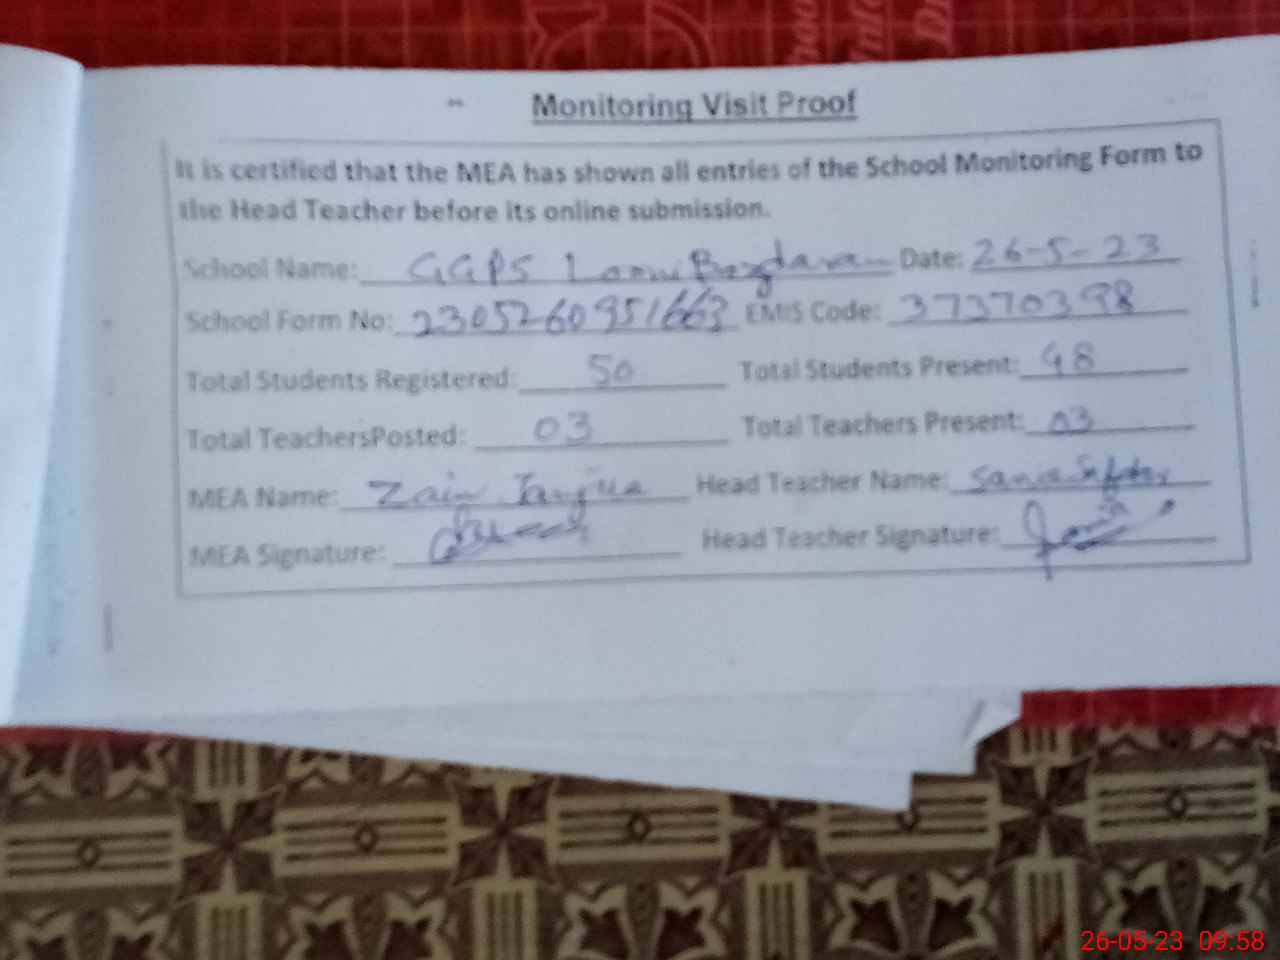 Monitoring Visit Proof
It is certified that the MEA has shown all entries of the School Monitoring Form to
the Head Teacher before its online submission.
School Name: GGPS Date: 26-5-23
School Form No: 2305260951663 EMIS Code: 37370398
Total Students Registered: 50 Total Students Present: 48
Total TeachersPosted: 03 Total Teachers Present: 03
MEA Name: Zain Head Teacher Name:
MEA Signature: Head Teacher Signature:
26-05-23 09:58